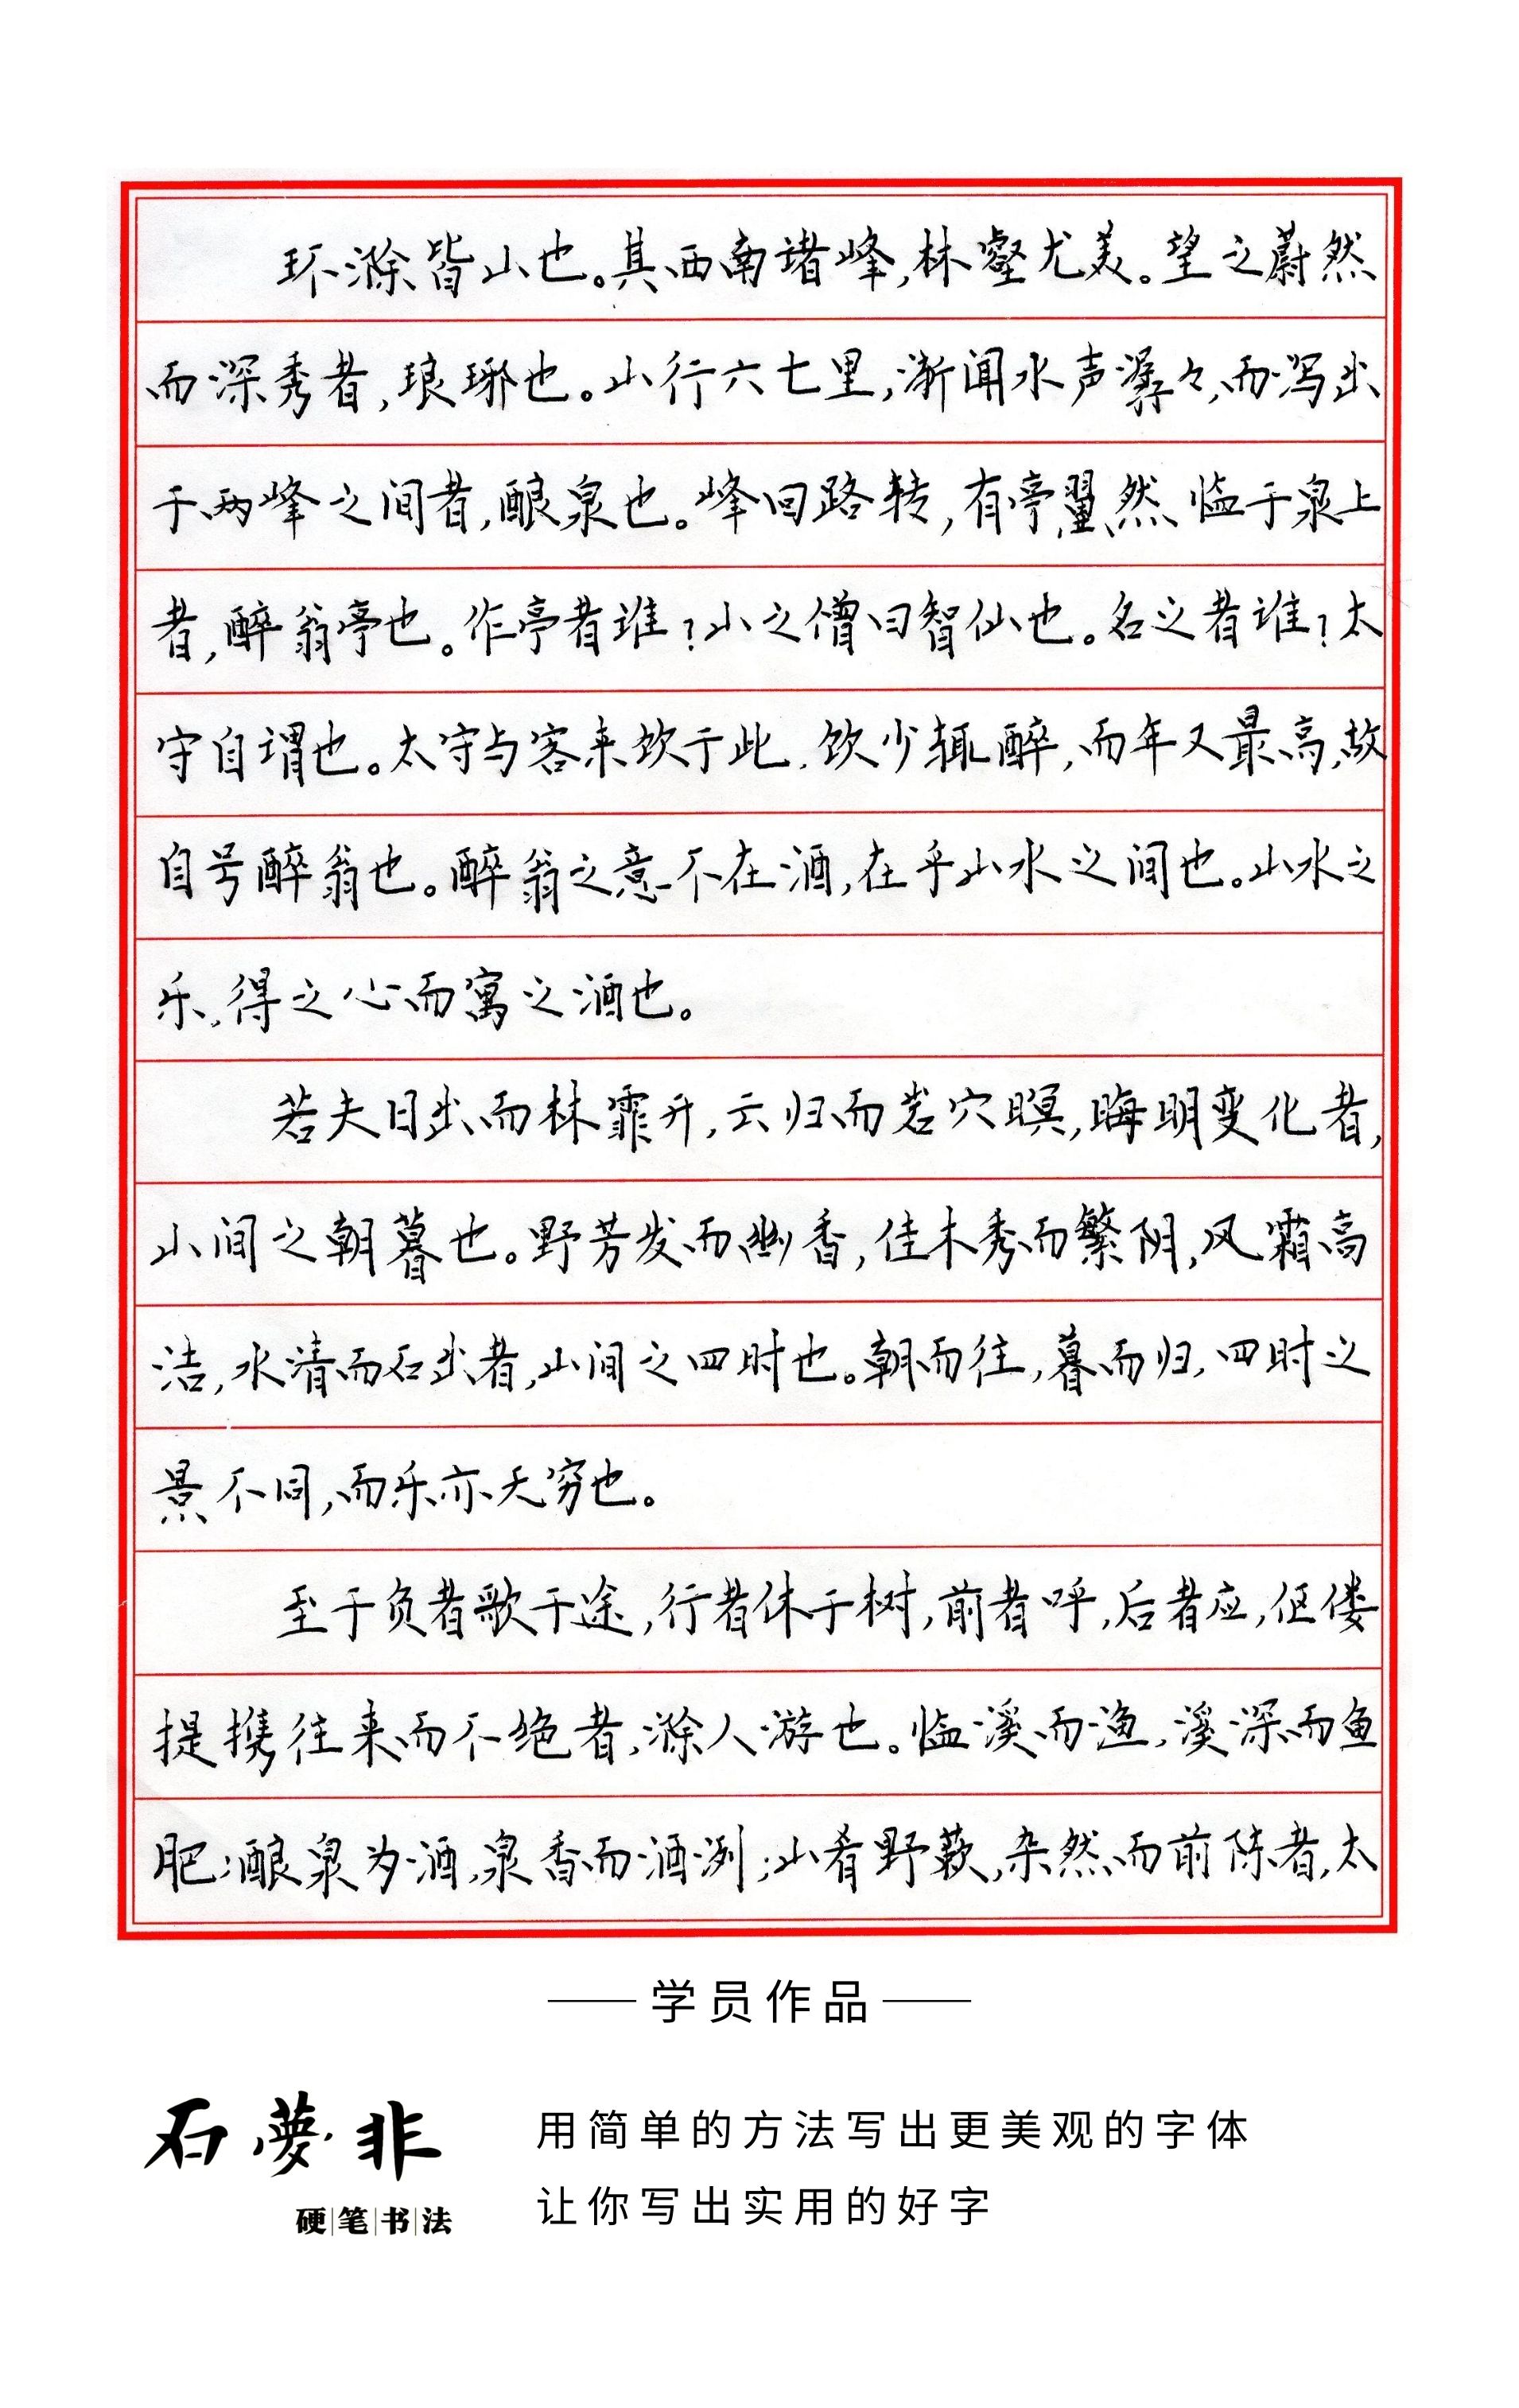 环滁皆山也。其西南诸峰,林壑尤美。望之蔚然
而深秀者,琅琊也。山行六七里,渐闻水声潺々,而泻出
于两峰之间者,酿泉也。峰回路转,有亭翼然临于泉上
者,醉翁亭也。作亭者谁?山之僧曰智仙也。名之者谁?太
守自谓也。太守与客来饮于此,饮少辄醉,而年又最高,故
自号醉翁也。醉翁之意不在酒,在乎山水之间也。山水之
乐,得之心而寓之酒也。
若夫日出而林霏开,云归而岩穴暝,晦明变化者,
山间之朝暮也。野芳发而幽香,佳木秀而繁阴,风霜高
洁,水清而石出者,山间之四时也。朝而往,暮而归,四时之
景不同,而乐亦无穷也。
至于负者歌于途,行者休于树,前者呼,后者应,伛偻
提携往来而不绝者,滁人游也。临溪而渔,溪深而鱼
肥;酿泉为酒,泉香而酒洌;山肴野蔌,杂然而前陈者,太
学员作品
石夢非
硬笔书法
用简单的方法写出更美观的字体
让你写出实用的好字